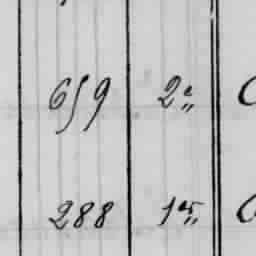 659 2e„
288 1re„